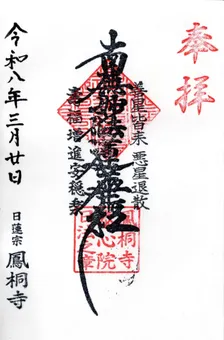 奉拝
善星皆来 悪星退散
南無妙法蓮華経
寿福増進 安穏
令和八年三月廿日
日蓮宗 鳳桐寺
鳳桐寺
心院